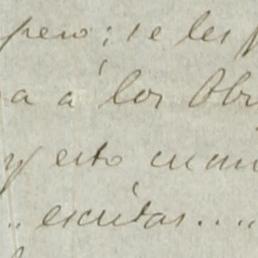 pero; se les
a á los Obr
y esto cuan
.. escritas....